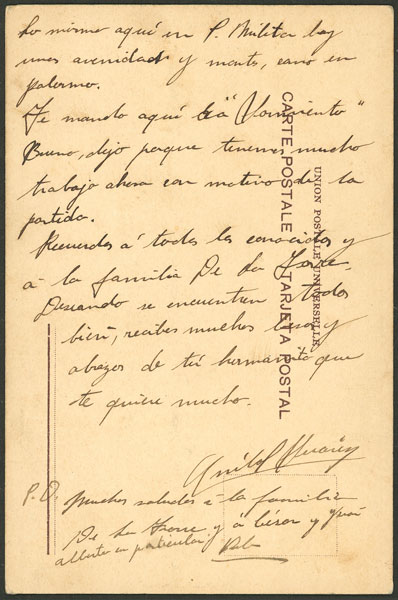 Lo mismo aquí en P. Militar hay
unas avenidas y monts, como en
palermo.
Te mando aquí la "Sarmiento"
Bueno, dejo porque tenemos mucho
trabajo ahora con motivo de la
partida.
Recuerdos á todos los conocidos y
á la familia De La Torre.
Deseando se encuentren todos
bien, recibes muchos besos y
abrazos de tú hermanito que
te quiere mucho.
P.D. Muchos saludos á la familia
De La Torre y á César y
Alberto en particular.
CARTE POSTALE TARJETA POSTAL
UNION POSTALE UNIVERSELLE